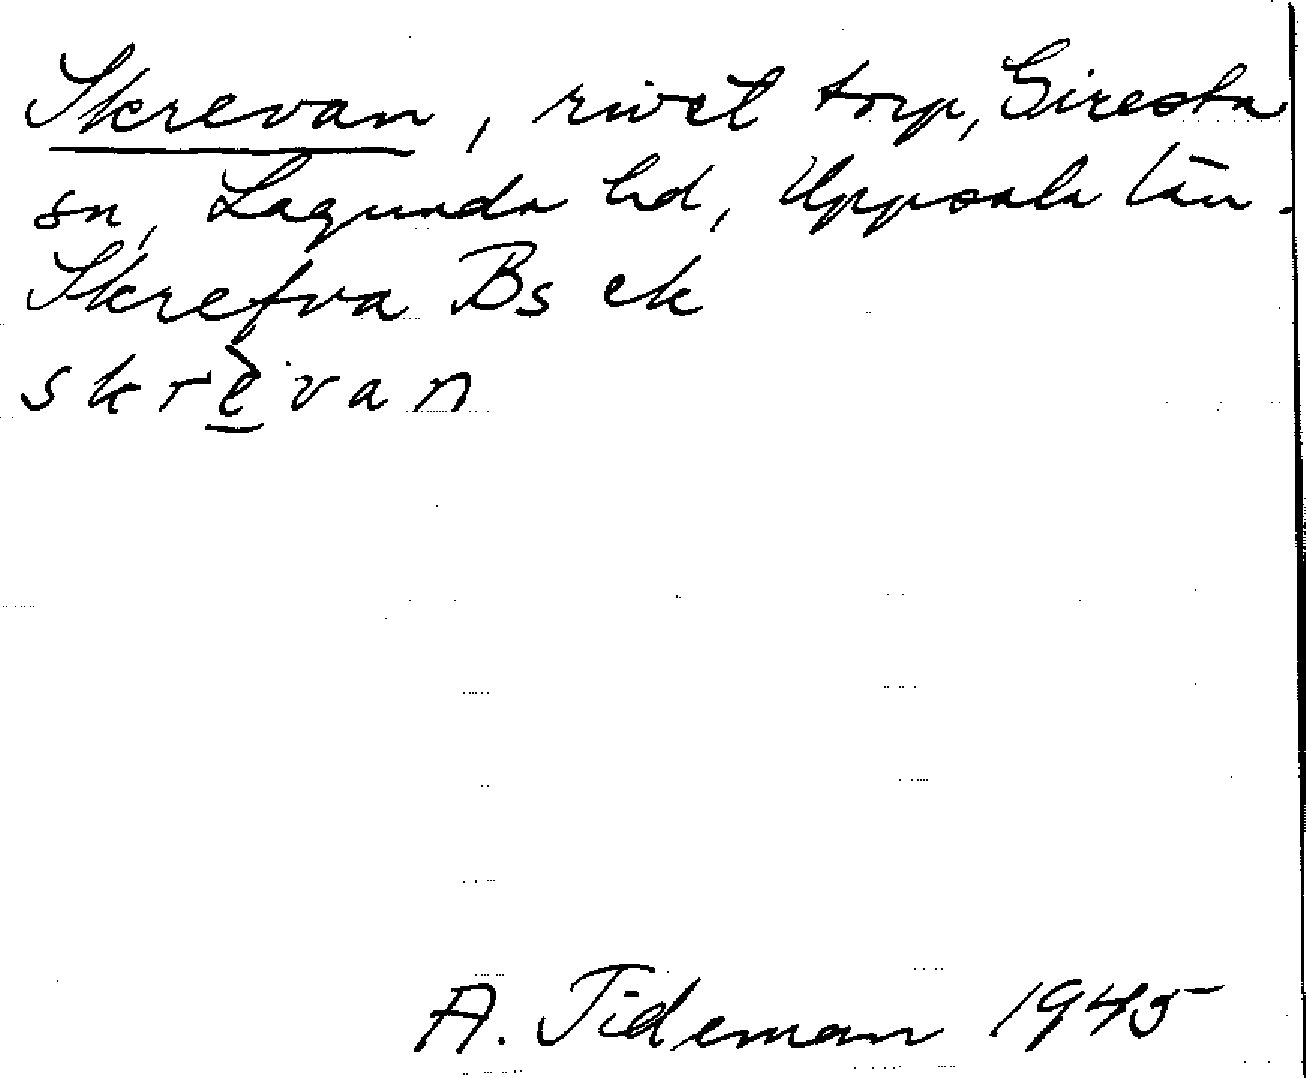 Skrevan, rivet torp, Giresta
sn, Lagunda hd, Uppsala län.
Skrefva Bs ek
skrè̱van
A. Tideman 1945